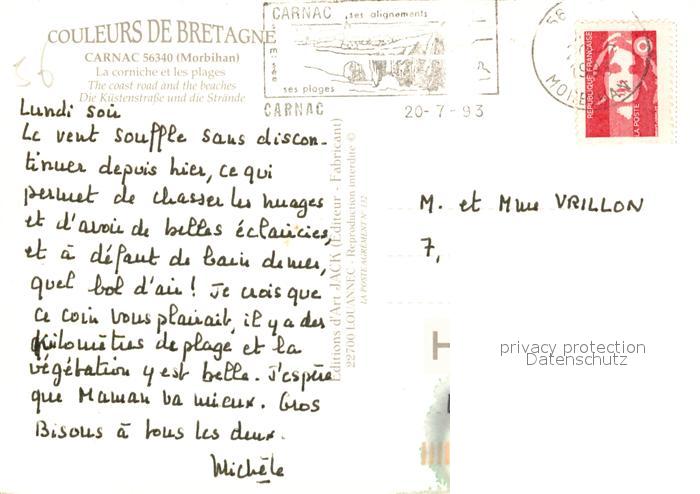 56
COULEURS DE BRETAGNE
CARNAC 56340 (Morbihan)
La corniche et les plages
The coast road and the beaches
Die Küstenstraße und die Strände
CARNAC ses alignements
musée
ses plages
CARNAC
20-7-93
56
MORBIHAN
REPUBLIQUE FRANÇAISE
LA POSTE
Lundi soir
Le vent souffle sans discon-
tinuer depuis hier, ce qui
permet de chasser les nuages
et d'avoir de belles éclaircies,
et à défaut de bain de mer,
quel bol d'air ! Je crois que
ce coin vous plairait, il y a des
kilomètres de plage et la
végétation y est belle. J'espère
que Maman va mieux. Gros
Bisous à tous les deux.
Michèle
Editions d'Art JACK (Editeur - Fabricant)
22700 LOUANNEC - Reproduction interdite ©
LA POSTE AGREMENT N° 132
M. et Mme VRILLON
7,
H
privacy protection
Datenschutz